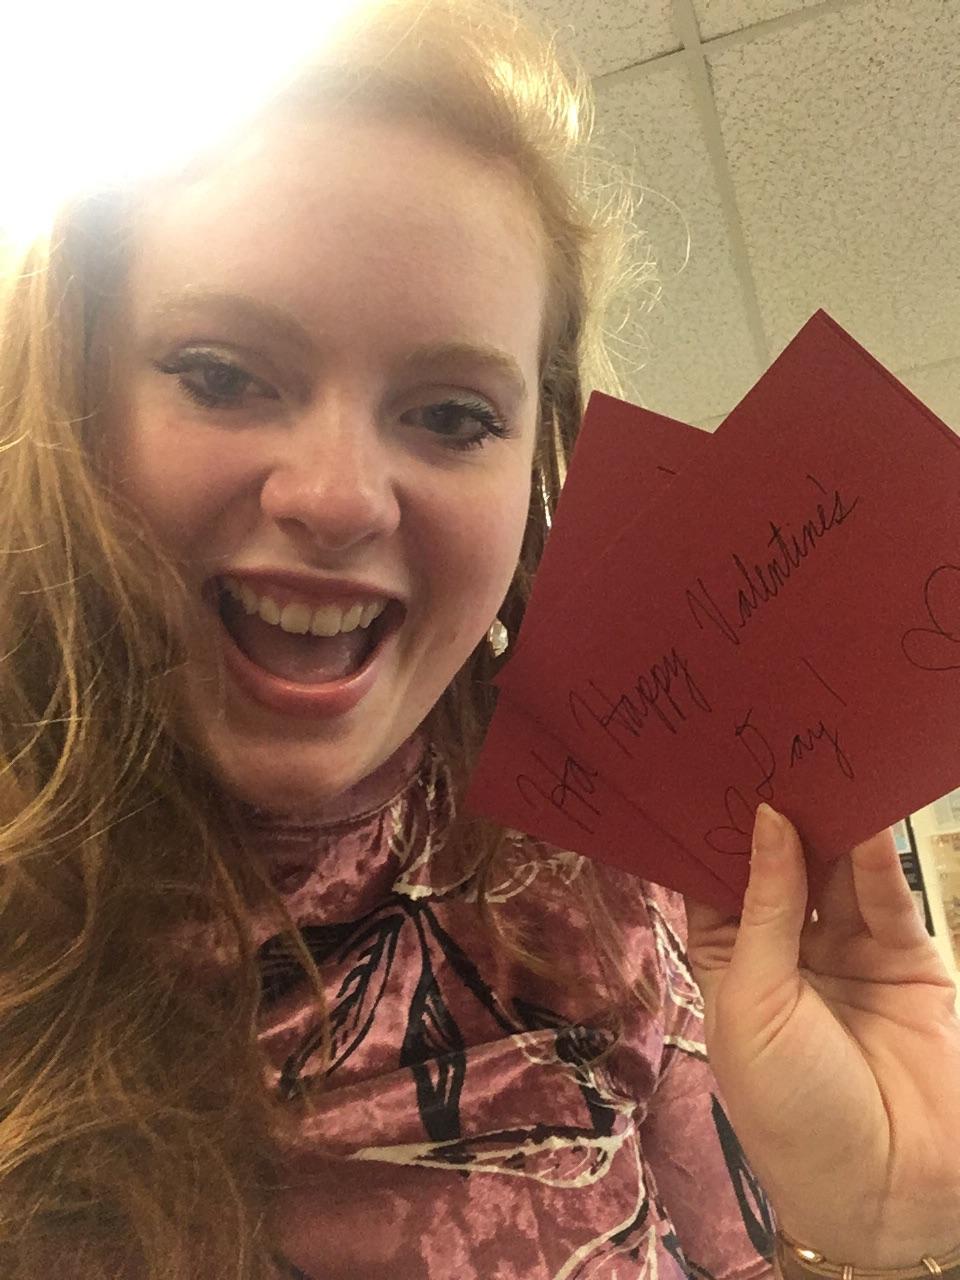 Happy Valentine's
Day!
Ha